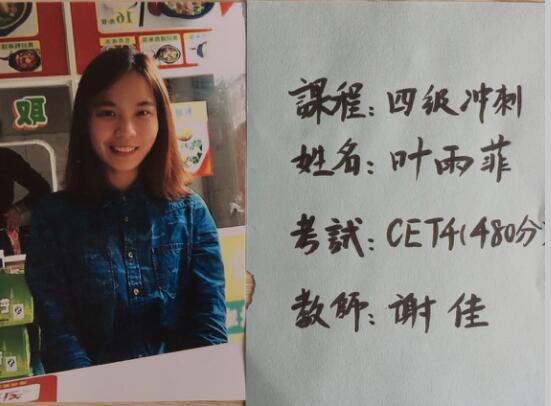 課程：四级冲刺
姓名：叶雨菲
考試：CET4(480分)
教師：谢佳